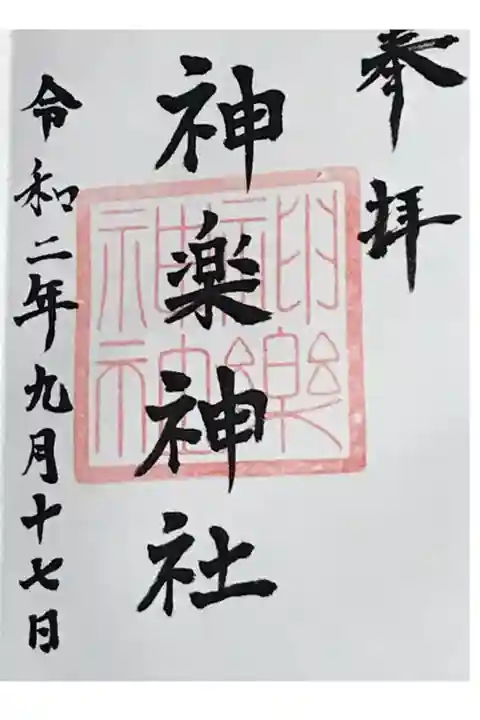 奉拝
神楽神社
令和二年九月十七日